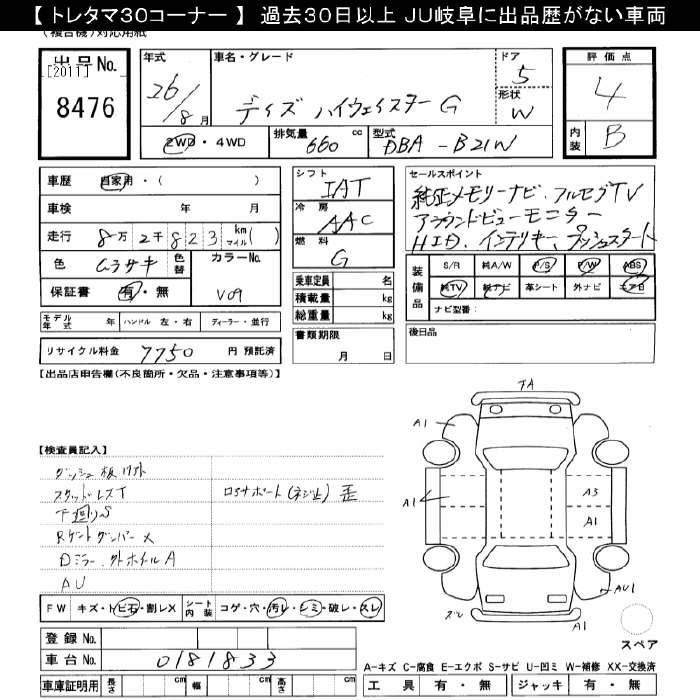 【トレタマ30コーナー】過去30日以上 JU岐阜に出品歴がない車両
(複合機)対応用紙
出品No.
[2011]
8476
年式
26/8月
車名・グレード
デイズ ハイウェイスターG
ドア
5
形状
W
評価点
4
内装
B
2WD・4WD
排気量
660 cc
型式
DBA-B21W
車歴
自家用・( )
車検
年 月
走行
8万2千823 km マイル( )
色
ムラサキ
色替
カラーNo.
V09
保証書
有・無
モデル年式
年
ハンドル 左・右
ディーラー・並行
リサイクル料金
7750 円 預託済
シフト
IAT
冷房
AAC
燃料
G
乗車定員 名
積載量 kg
総重量 kg
書類期限
月 日
セールスポイント
純正メモリーナビ.フルセグTV
アラウンドビューモニター
HID.インテリキー.プッシュスタート
装備品
S/R 純A/W P/S P/W ABS
純TV 純ナビ 革シート 外ナビ エアB
ナビ型番:
後日品
【出品店申告欄(不良箇所・欠品・注意事項等)】
【検査員記入】
ダッシュ板
スタッドレスT
下廻りS
ロSサポート(ネジ止)歪
Rゲートダンパー X
Dミラー.タホイルA
AU
FW キズ・トビ石・割レX
シート内装
コゲ・穴・汚レ・シミ・破レ・スレ
登録No.
車台No.
0181833
車庫証明用
長さ cm 幅 cm 高さ cm
TA
A1
A1
A3
A1
AU1
ズレ
A1
スペア
A-キズ C-腐食 E-エクボ S-サビ U-凹ミ W-補修 XX-交換済
工具 有・無
ジャッキ 有・無